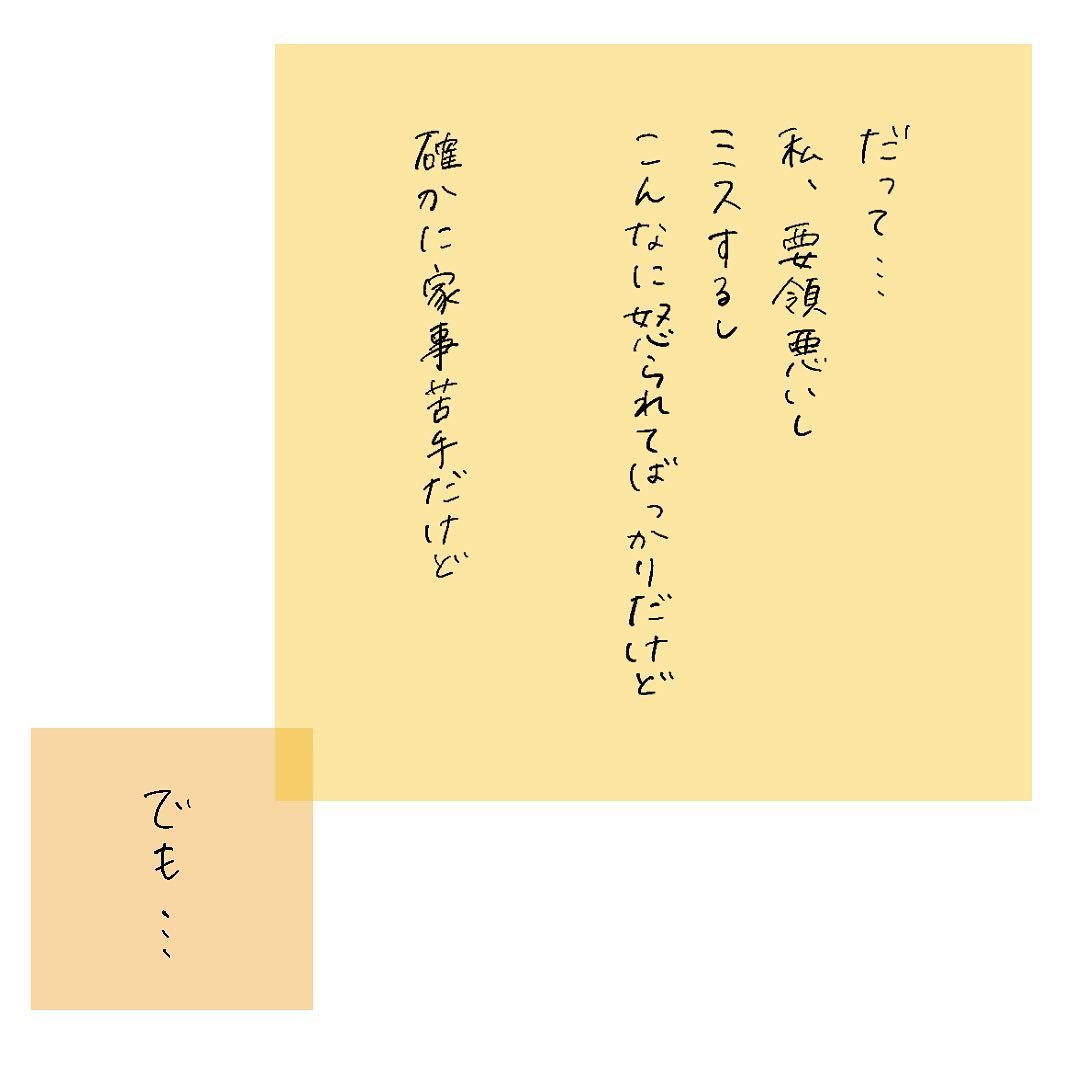 だって…
私、要領悪いし
ミスするし
こんなに怒られてばっかりだけど
確かに家事苦手だけど
でも…